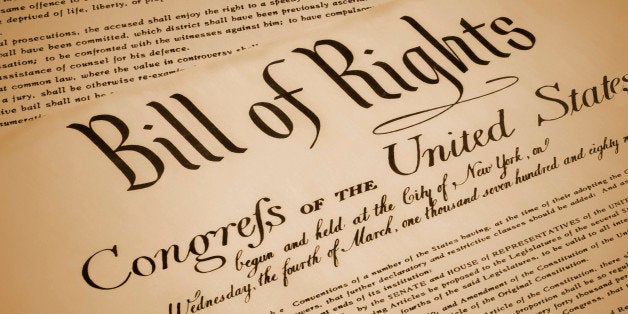 same offence to
be deprived of life, liberty, or prope
prosecutions, the accused shall enjoy the right to a speedy
shall have been committed, which district shall have been previously ascertai
to be confronted with the witnesses against him; to have compulso
assistance of counsel for his defence.
at common law, where the value in controversy shall
a jury, shall be otherwise re-exam
bail shall not be
enumerati
Bill of Rights
Congreſs OF THE United States
begun and held at the City of New York, on
Wednesday, the fourth of March, one thousand seven hundred and eighty n
Conventions of a number of the States having, at the time of their adopting the C
that further declaratory and restrictive clauses should be added: And as
ends of its institution:
by the SENATE and HOUSE of REPRESENTATIVES of the UNIT
Articles be proposed to the Legislatures of the several St
fourths of the said Legislatures, to be valid to all inten
, AND Amendment of the Constitution of the Un
Article of the Original Constitution.